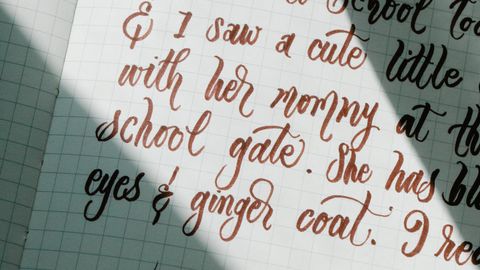 School
& I saw a cute little
with her mommy at
school gate. She has
eyes & ginger coat. I